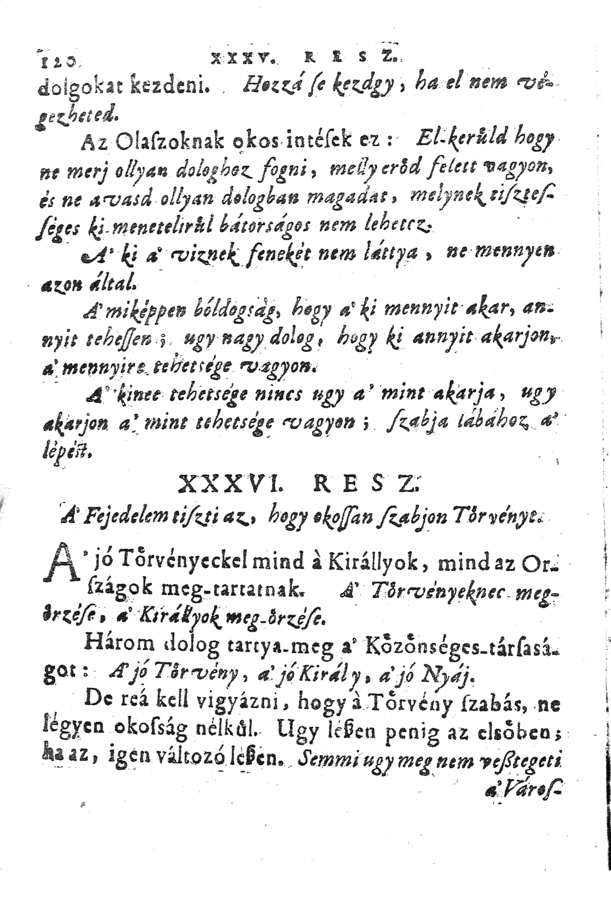 120. XXXV. RESZ.
dolgokat kezdeni. Hozzá ſe kezdgy, ha el nem vé-
gezheted.
Az Olaſzoknak okos intéſek ez: El-kerůld hogy
ne merj ollyan dologhoz fogni, melly erőd felett vagyon,
és ne avasd ollyan dologban magadat, melynek tiſzteſ-
ſéges ki-menetelirůl bátorságos nem lehetcz.
A' ki a' viznek fenekét nem láttya, ne mennyen
azon által.
A' miképpen bóldogság, hogy a' ki mennyit akar, an-
nyit teheſſen; ugy nagy dolog, hogy ki annyit akarjon,
a' mennyire tehetsége vagyon.
A' kinec tehetsége nincs ugy a' mint akarja, ugy
akarjon a' mint tehetsége vagyon; ſzabja lábához a'
lépéſt.
XXXVI. RESZ.
A' Fejedelem tiſzti az, hogy okoſſan ſzabjon Tőrvényt.
A' jó Tőrvényeckel mind à Királlyok, mind az Or-
ſzágok meg-tartatnak. A' Tőrvényeknec meg-
őrzéſe, a' Királlyok meg-őrzéſe.
Három dolog tartya-meg a' Kőzőnséges-tárſasá-
got: A' jó Tőrvény, a' jó Király, a' jó Nyáj.
De reá kell vigyázni, hogy à Tőrvény ſzabás, ne
légyen okoſság nélkůl. Ugy léßen penig az elsőben;
ha az, igen változó léßen. Semmi ugy meg nem veßtegeti
a' Városſ-